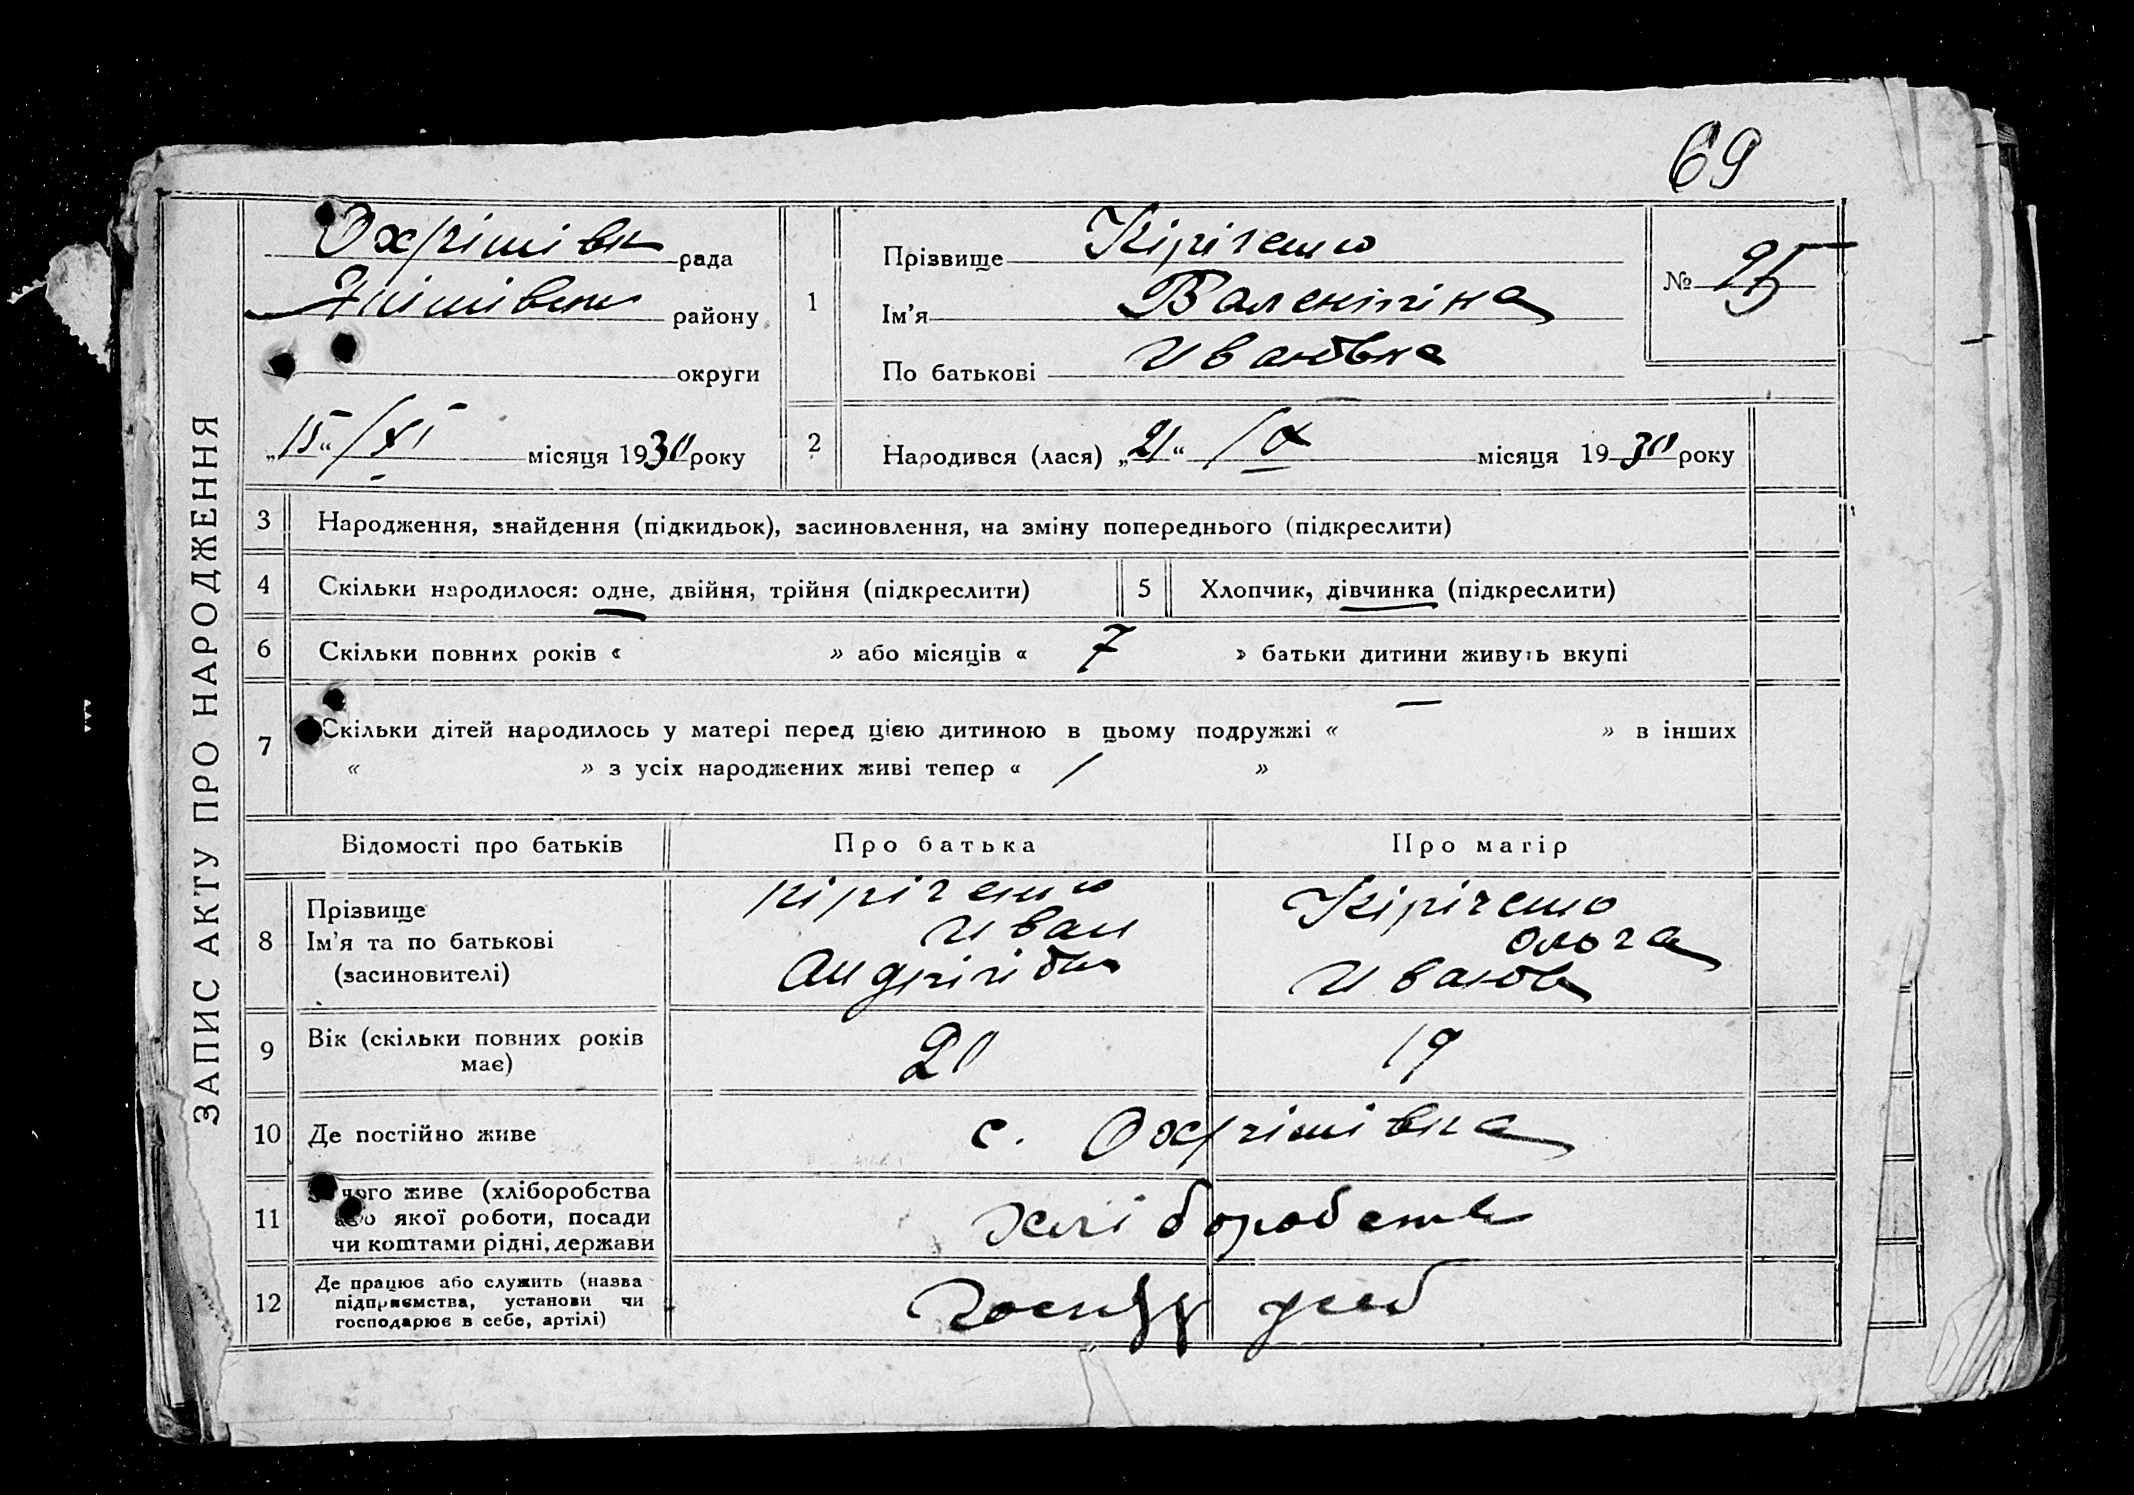 69
ЗАПИС АКТУ ПРО НАРОДЖЕННЯ
Охрімівк рада
району
округи
„15“ / XI місяця 1930 року
1
Прізвище Кіріченко
Ім’я Валентіна
По батькові Ивановна
№ 25
2
Народився (лася) „21“ / X місяця 1930 року
3 Народження, знайдення (підкидьок), засиновлення, на зміну попереднього (підкреслити)
4 Скільки народилося: одне, двійня, трійня (підкреслити)
5 Хлопчик, дівчинка (підкреслити)
6 Скільки повних років « » або місяців « 7 » батьки дитини живуть вкупі
7 Скільки дітей народилось у матері перед цією дитиною в цьому подружжі « — » в інших
« » з усіх народжених живі тепер « / »
Відомості про батьків
Про батька
Про матір
8 Прізвище
Ім’я та по батькові
(засиновителі)
Кіріченко
Иван
Кіріченко
Ольга
Иванов
9 Вік (скільки повних років
має)
20
19
10 Де постійно живе
с. Охрімівка
11 чого живе (хліборобства
або якої роботи, посади
чи коштами рідні, держави
Хліборобств
12 Де працює або служить (назва
підприємства, установи чи
господарює в себе, артілі)